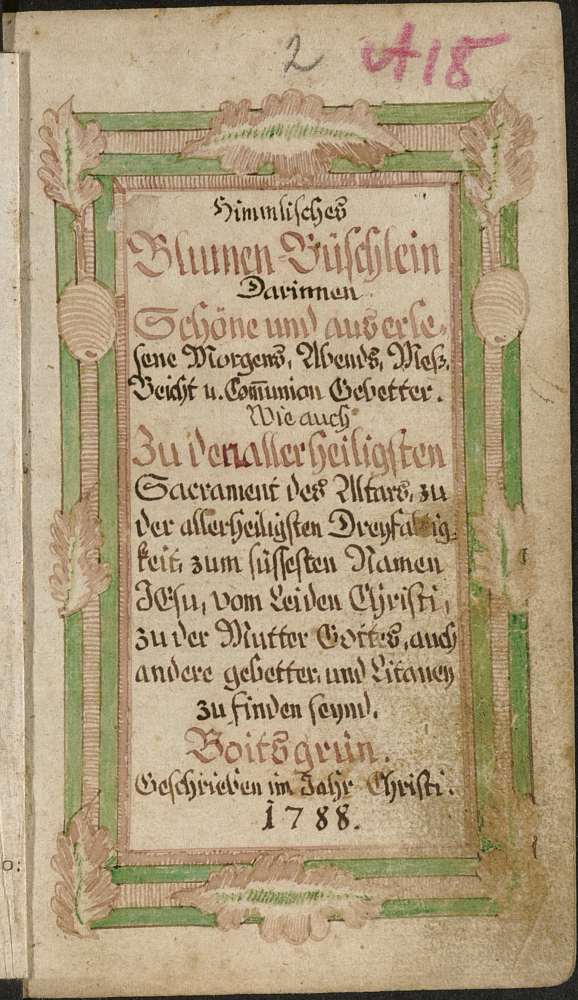 2 A18
Himmlisches
Blumen-Büschlein
Darinnen
Schöne und auserle-
sene Morgens, Abends, Meß,
Beicht u. Com̅union Gebetter.
Wie auch
Zu den allerheiligsten
Sacrament des Altars, zu
der allerheiligsten Dreyfaltig-
keit, zum süssesten Namen
JEsu, vom Leiden Christi,
zu der Mutter Gottes, auch
andere gebetter, und Litaney
zu finden seynd.
Boitsgrün.
Geschrieben im Jahr Christi.
1788.